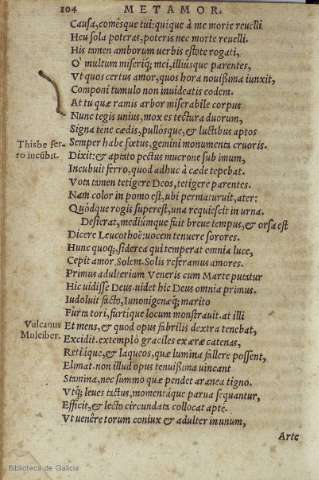 104 METAMOR.
Causa, comesque tui: quique à me morte reuelli
Heu sola poteras, poteris nec morte reuelli.
His tamen amborum uerbis estote rogati,
O' multum miseriq; mei, illiusque parentes,
Vt quos certus amor, quos hora nouißima iunxit,
Componi tumulo non inuideatis eodem.
At tu quæ ramis arbor miserabile corpus
Nunc tegis unius, mox es tectura duorum,
Signa tene cædis, pullósque, & luctibus aptos
Thisbe fer- Semper habe fœtus, gemini monumenta cruoris.
ro incubit. Dixit: & aptato pectus mucrone sub imum,
Incubuit ferro, quod adhuc à cæde tepebat.
Vota tamen tetigere Deos, tetigere parentes.
Nam color in pomo est, ubi permaturuit, ater:
Quódque rogis superest, una requiescit in urna.
Desierat, mediumque fuit breue tempus, & orsa est
Dicere Leucothoë: uocem tenuere sorores.
Hunc quoq;, siderea qui temperat omnia luce,
Cepit amor Solem. Solis referamus amores.
Primus adulterium Veneris cum Marte putatur
Hic uidisse Deus: uidet hic Deus omnia primus.
Indoluit facto, Iunonigenæq; marito
Furta tori, furtique locum monstrauit. at illi
Vulcanus Et mens, & quod opus fabrilis dextra tenebat,
Mulciber. Excidit. extemplò graciles ex ære catenas,
Retiáque, & laqueos, quæ lumina fallere possent,
Elimat. non illud opus tenuißima uincant
Stamina, nec summo quæ pendet aranea tigno.
Vtq; leues tactus, momentáque parua sequantur,
Efficit, & lecto circundata collocat apte.
Vt uenêre torum coniux & adulter in unum,
Arte
Biblioteca de Galicia